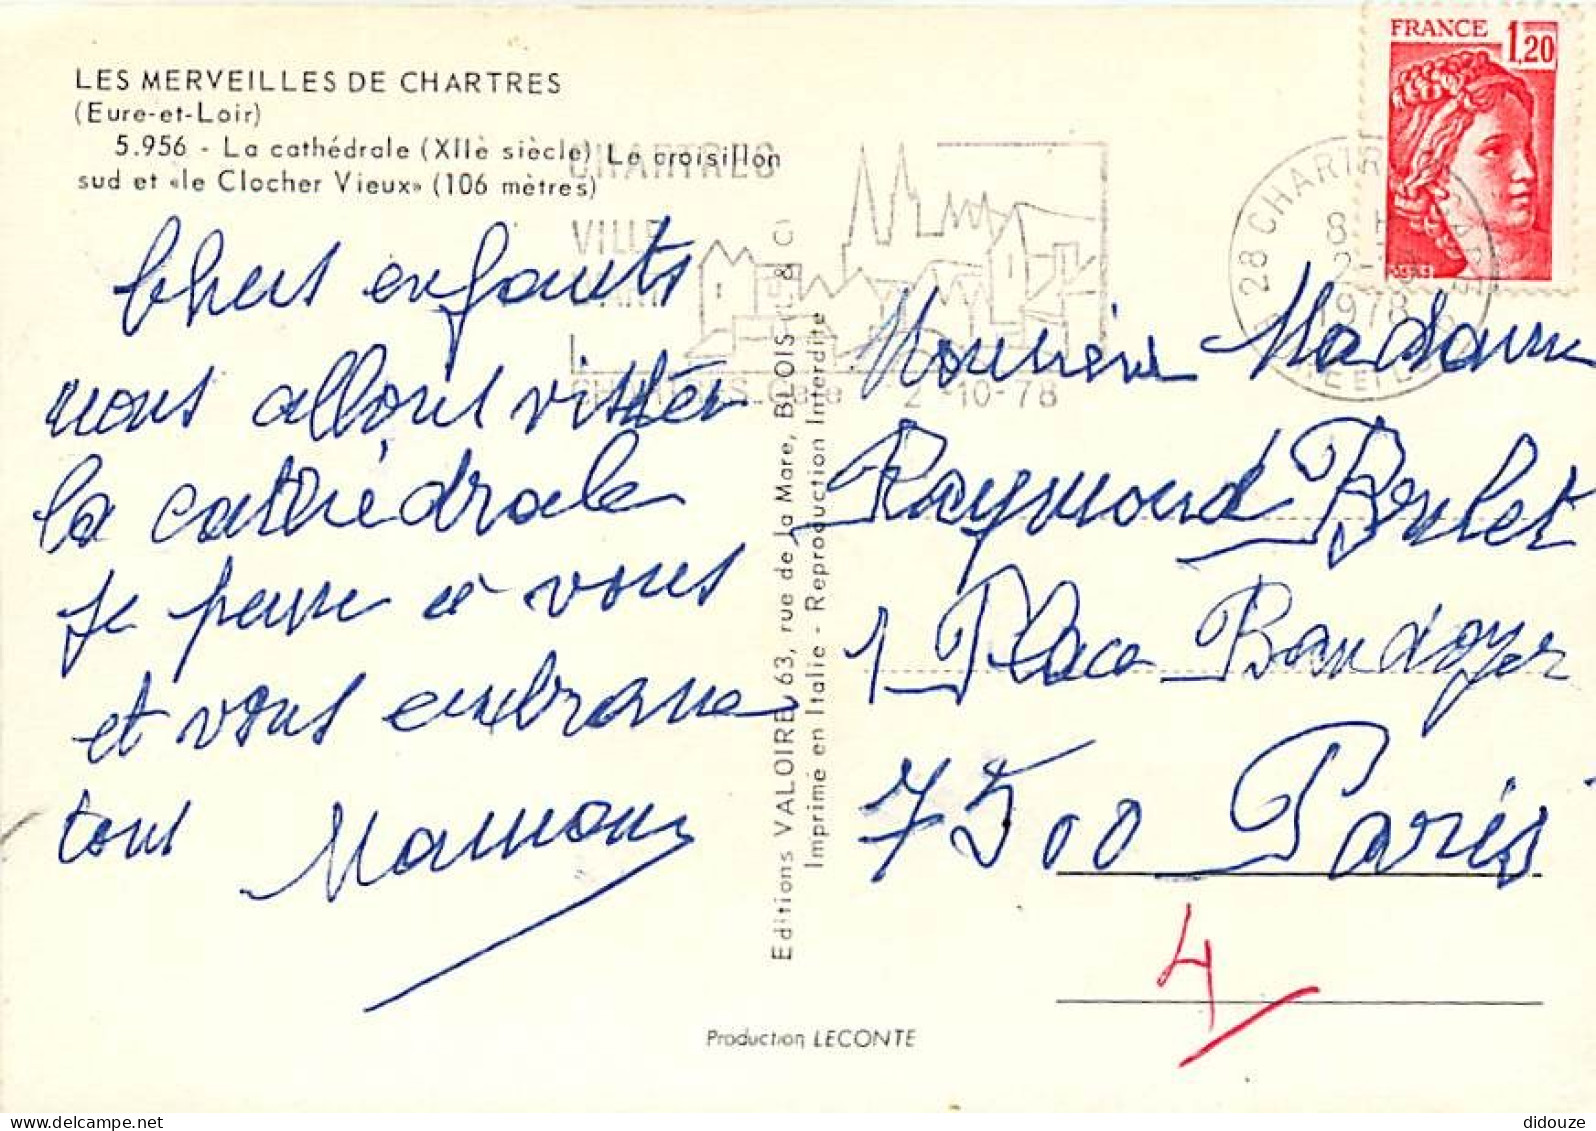 LES MERVEILLES DE CHARTRES
(Eure-et-Loir)
5.956 - La cathédrale (XIIè siècle) Le croisillon
sud et «le Clocher Vieux» (106 mètres)
CHARTRES
VILLE
D'ART
CHARTRES Gare 2 -10-78
FRANCE 1,20
28 CHARTRES GARE
8 H
2-
1978
EURE ET LOIR
Chers enfants
nous allons visiter
la cathédrale
Je pense à vous
et vous embrasse
tous Maman
Editions VALOIRE, 63, rue de la Mare, BLOIS (L. & C)
Imprimé en Italie - Reproduction Interdite
Monsieur Madame
Raymond
1 Place Baudoyer
7500 Paris
4
Production LECONTE
didouze